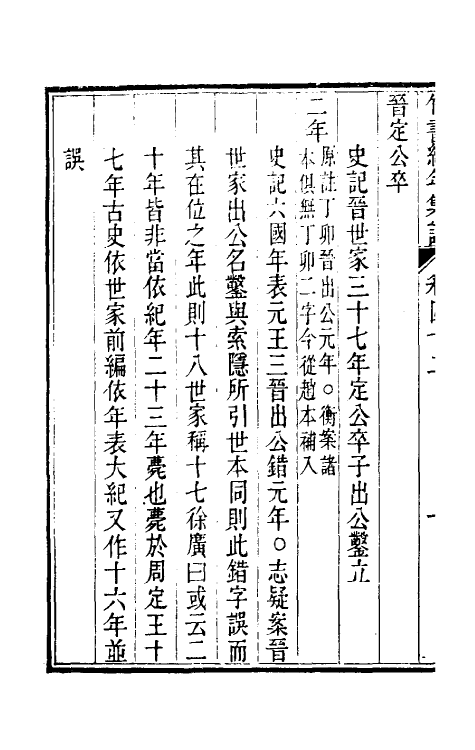 竹書紀年集證 卷四十二 一
晉定公卒
史記晉世家三十七年定公卒子出公鑿立
二年
原註丁卯晉出公元年○衡案諸
本俱無丁卯二字今從趙本補入
史記六國年表元王三晉出公錯元年○志疑案晉
世家出公名鑿與索隱所引世本同則此錯字誤而
其在位之年此則十八世家稱十七徐廣曰或云二
十年皆非當依紀年二十三年薨也薨於周定王十
七年古史依世家前編依年表大紀又作十六年並
誤